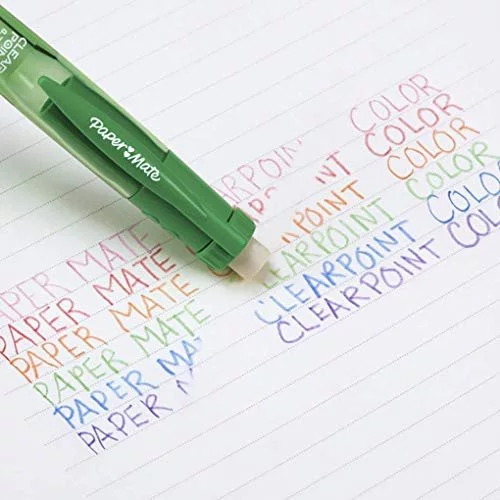 CLEAR
POINT
Paper Mate
PAPER MATE CLEARPOINT COLOR
PAPER MATE COLOR
PAPER MATE POINT COLOR
PAPER MATE EARPOINT COLOR
PAPER MAT CLEARPOINT COLOR
PAPER MA CLEARPOINT COLOR